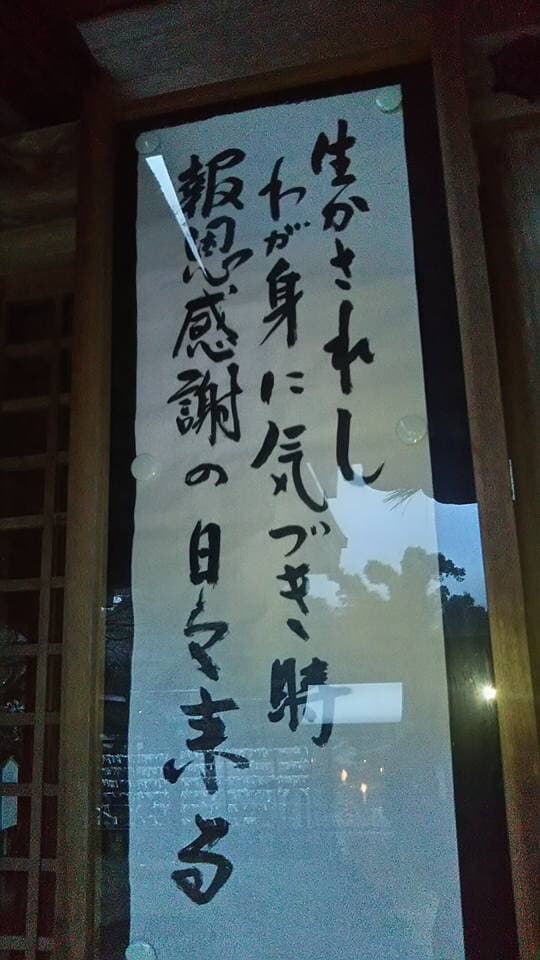 生かされし
わが身に気づき時
報恩感謝の日々来る